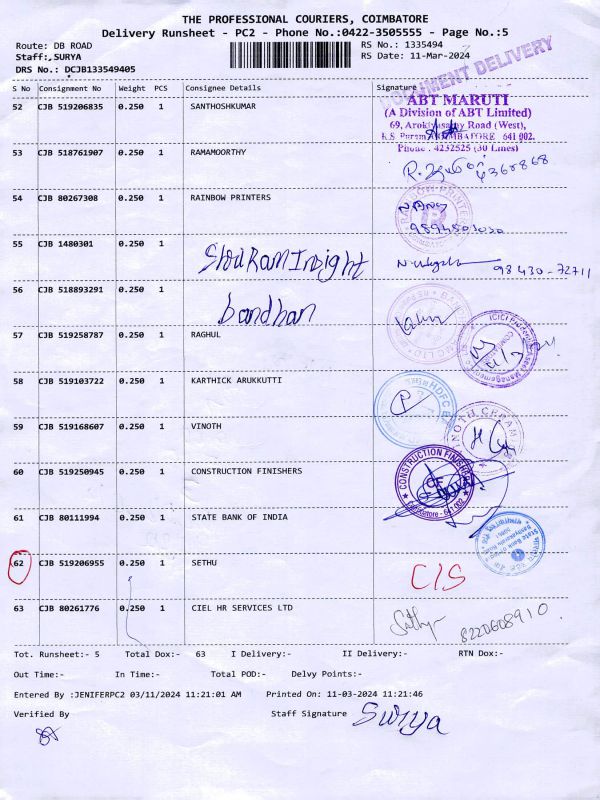 THE PROFESSIONAL COURIERS, COIMBATORE
Delivery Runsheet - PC2 - Phone No.:0422-3505555 - Page No.:5
Route: DB ROAD
RS No.: 1335494
Staff:,SURYA
RS Date: 11-Mar-2024
DRS No.: DCJB133549405
DOCUMENT DELIVERY
S No Consignment No Weight PCS Consignee Details Signature
52 CJB 519206835 0.250 1 SANTHOSHKUMAR
ABT MARUTI
(A Division of ABT Limited)
69, Arokyasamy Road (West),
R.S. Puram, COIMBATORE 641 002.
Phone : 4232525 (30 Lines)
53 CJB 518761907 0.250 1 RAMAMOORTHY
54 CJB 80267308 0.250 1 RAINBOW PRINTERS
RAINBOW PRINTERS
55 CJB 1480301 0.250 1
98430-72711
56 CJB 518893291 0.250 1 bandhan
57 CJB 519258787 0.250 1 RAGHUL
58 CJB 519103722 0.250 1 KARTHICK ARUKKUTTI
59 CJB 519168607 0.250 1 VINOTH
60 CJB 519250945 0.250 1 CONSTRUCTION FINISHERS
CONSTRUCTION FINISHERS
61 CJB 80111994 0.250 1 STATE BANK OF INDIA
62 CJB 519206955 0.250 1 SETHU C/S
63 CJB 80261776 0.250 1 CIEL HR SERVICES LTD
8220608910
Tot. Runsheet:- 5 Total Dox:- 63 I Delivery:- II Delivery:- RTN Dox:-
Out Time:- In Time:- Total POD:- Delvy Points:-
Entered By :JENIFERPC2 03/11/2024 11:21:01 AM Printed On: 11-03-2024 11:21:46
Verified By Staff Signature Surya